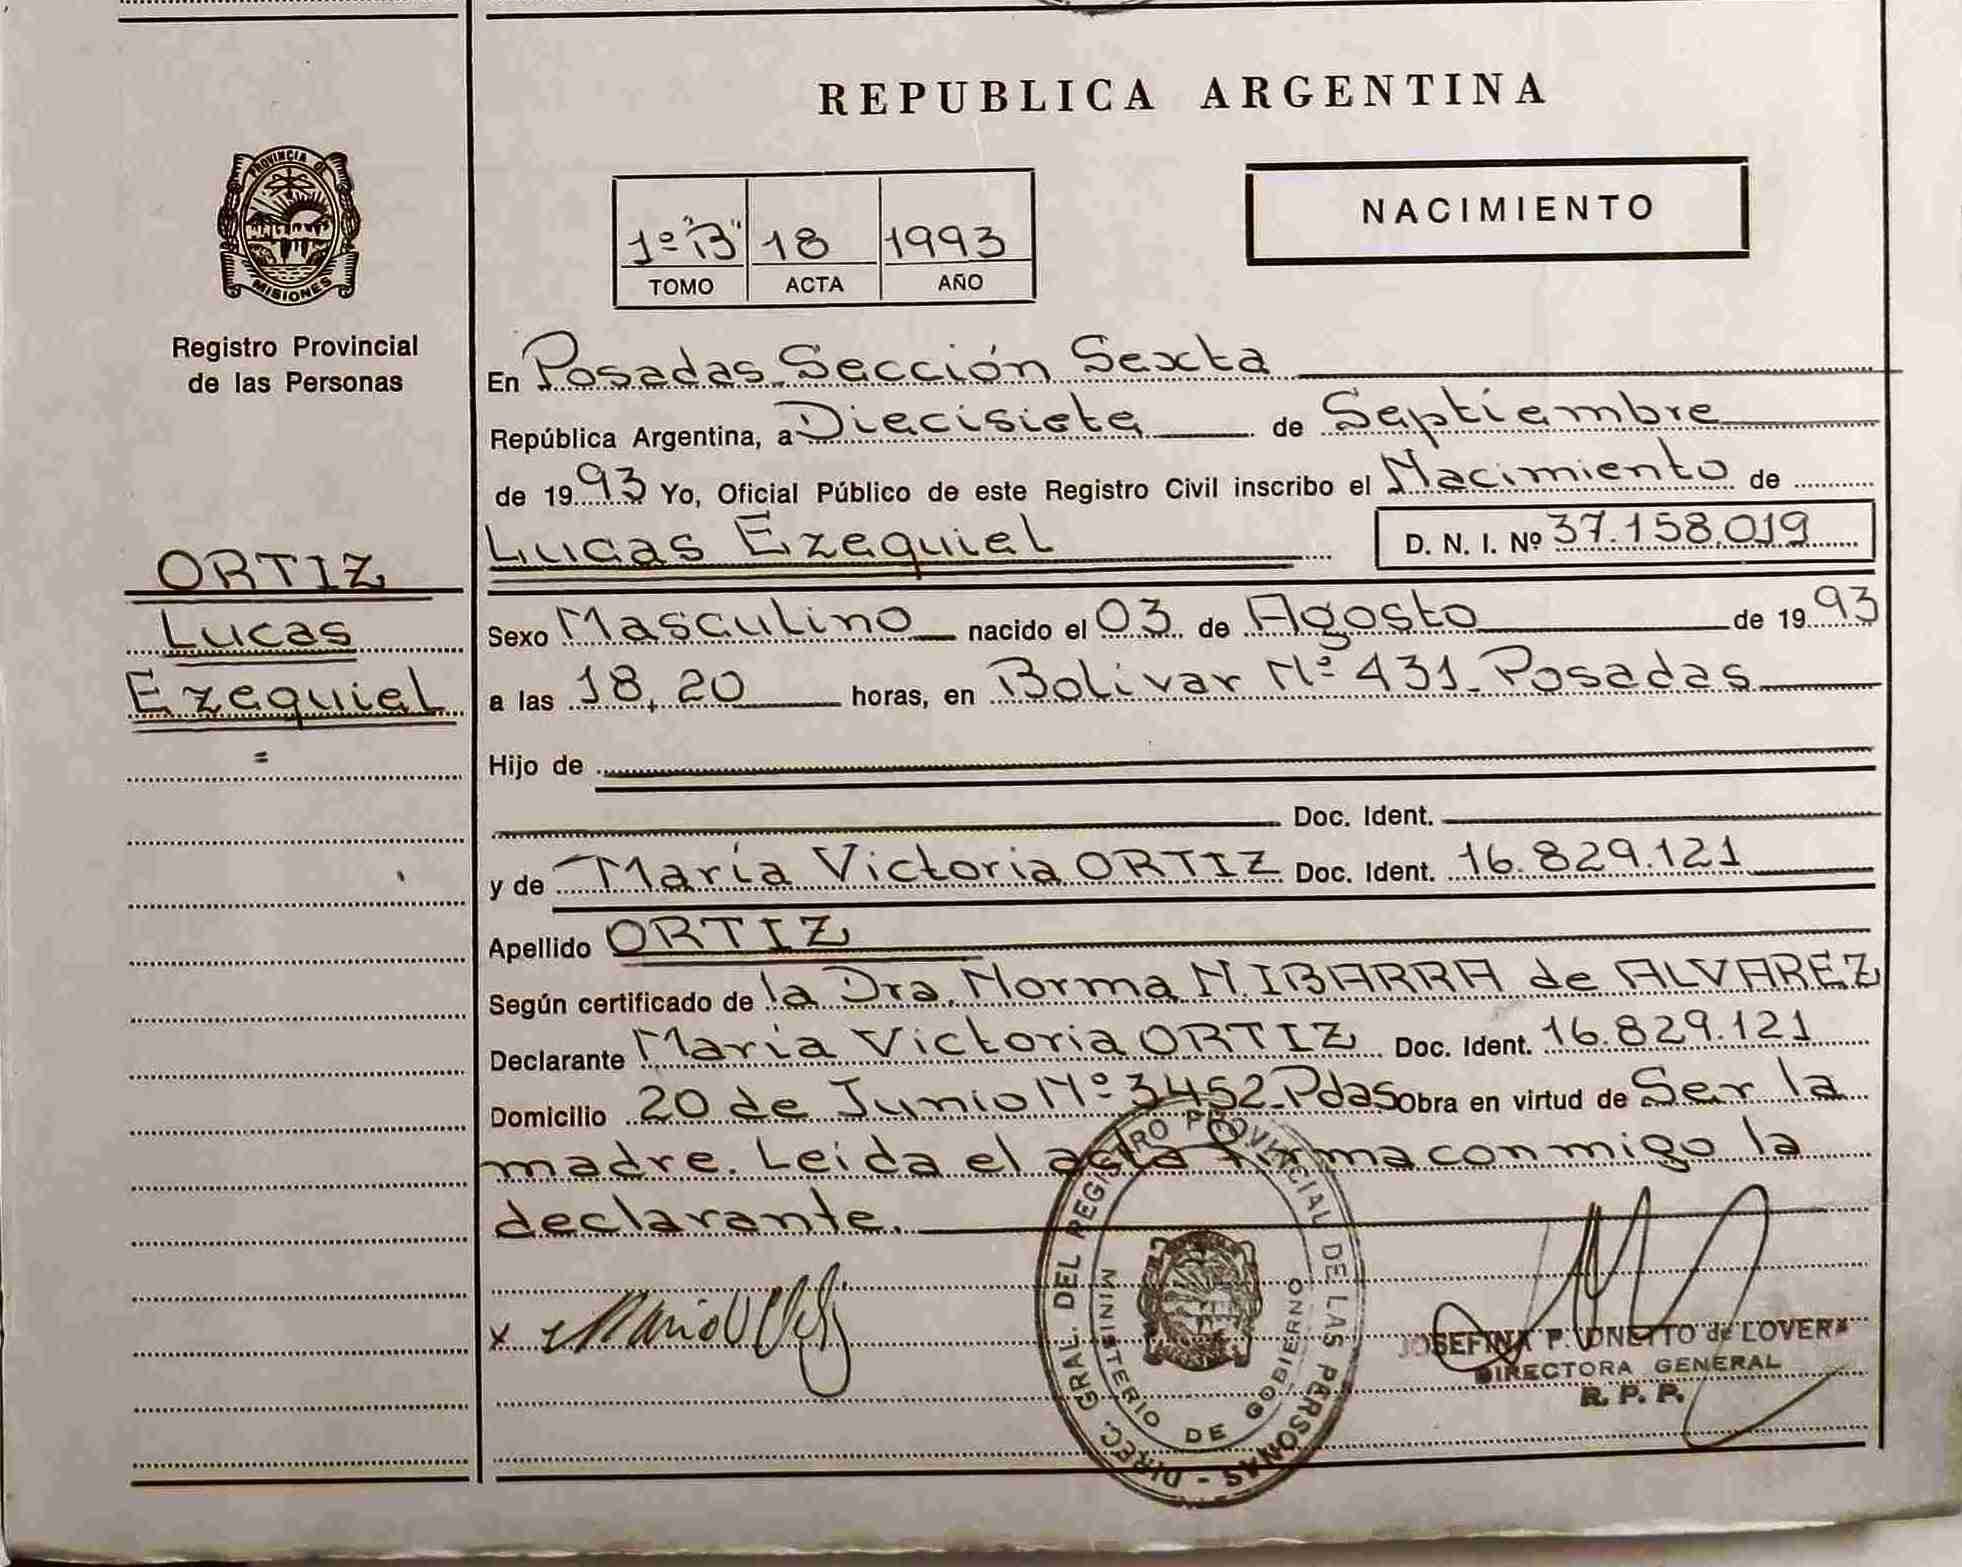 REPUBLICA ARGENTINA
PROVINCIA DE
MISIONES
Registro Provincial
de las Personas
1º "B" 18 1993
TOMO ACTA AÑO
NACIMIENTO
ORTIZ
Lucas
Ezequiel
=
En Posadas Sección Sexta
República Argentina, a Diecisiete de Septiembre
de 1993 Yo, Oficial Público de este Registro Civil inscribo el Nacimiento de
Lucas Ezequiel D. N. I. Nº 37.158.019
Sexo Masculino nacido el 03 de Agosto de 1993
a las 18,20 horas, en Bolivar Nº 431 - Posadas
Hijo de
Doc. Ident.
y de María Victoria ORTIZ Doc. Ident. 16.829.121
Apellido ORTIZ
Según certificado de la Dra. Norma N. IBARRA de ALVAREZ
Declarante María Victoria ORTIZ Doc. Ident. 16.829.121
Domicilio 20 de Junio Nº 3452 - Pdas Obra en virtud de Ser la
madre. Leida el acta firma conmigo la
declarante.
x
DIREC. GRAL. DEL REGISTRO PROVINCIAL DE LAS PERSONAS -
MINISTERIO DE GOBIERNO
JOSEFINA P. de LOVERA
DIRECTORA GENERAL
R. P. P.